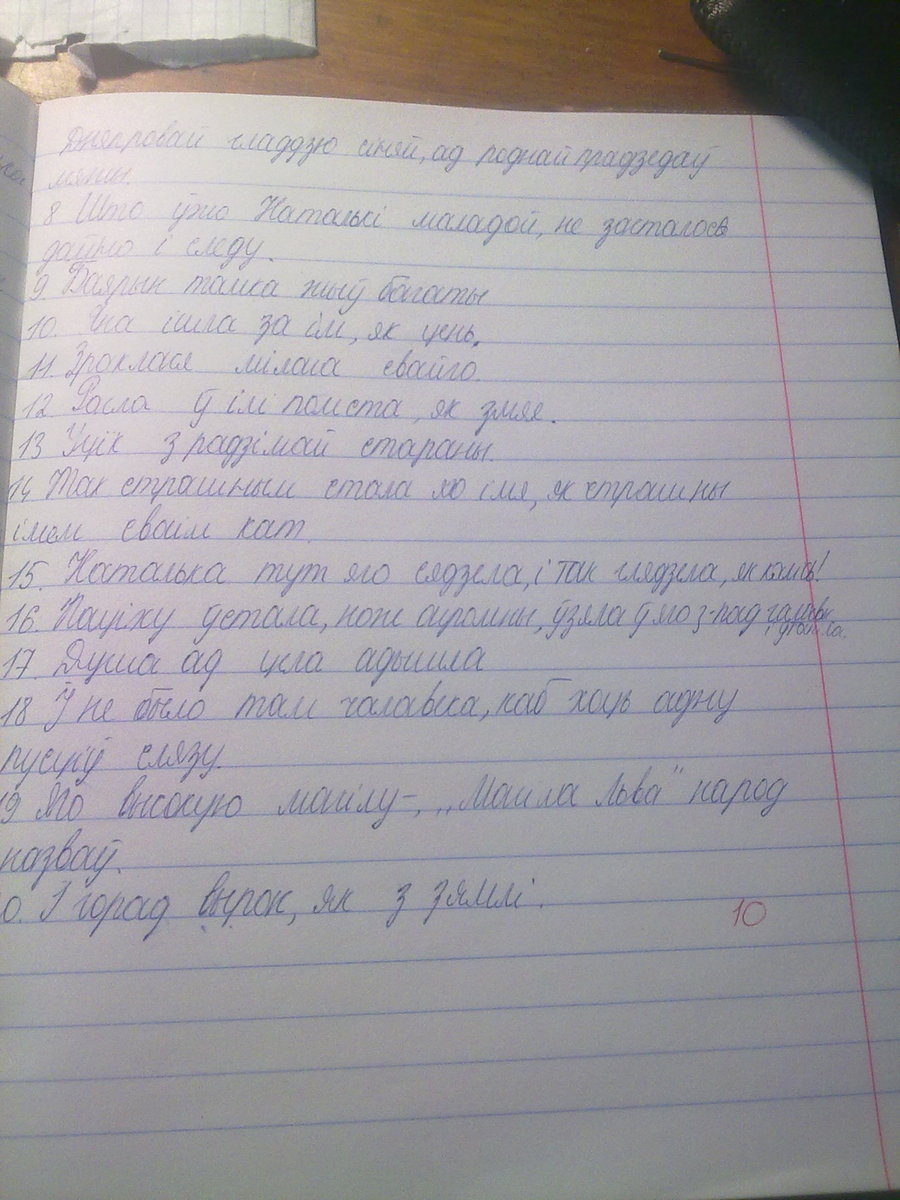 Дняпровай гладдзю сіняй, ад роднай прадзедаў
мяжы.
8 Што ўжо Наталькі маладой, не засталось
даўно і следу.
9. Баярын такка жыў багаты
10. Яна ішла за ім, як цень.
11. Зраклася мілага свайго.
12 Расла ў ім помста, як змяя.
13 Уцік з радзімай стараны.
14 Так страшным стала яго імя, як страшны
імем сваім кат.
15. Наталька тут яго сядзела, і так глядзела, як
16. Паціху ўстала, нож агромны, ўзяла ў яго з-пад галавы
17. Душа ад цела адышла
18 Ў не было там чалавека, каб хоць адну
пусціў слязу.
19 Яго высокую магілу –, „Магіла Льва" народ
назваў.
0. І горад вырас, як з зямлі.
10